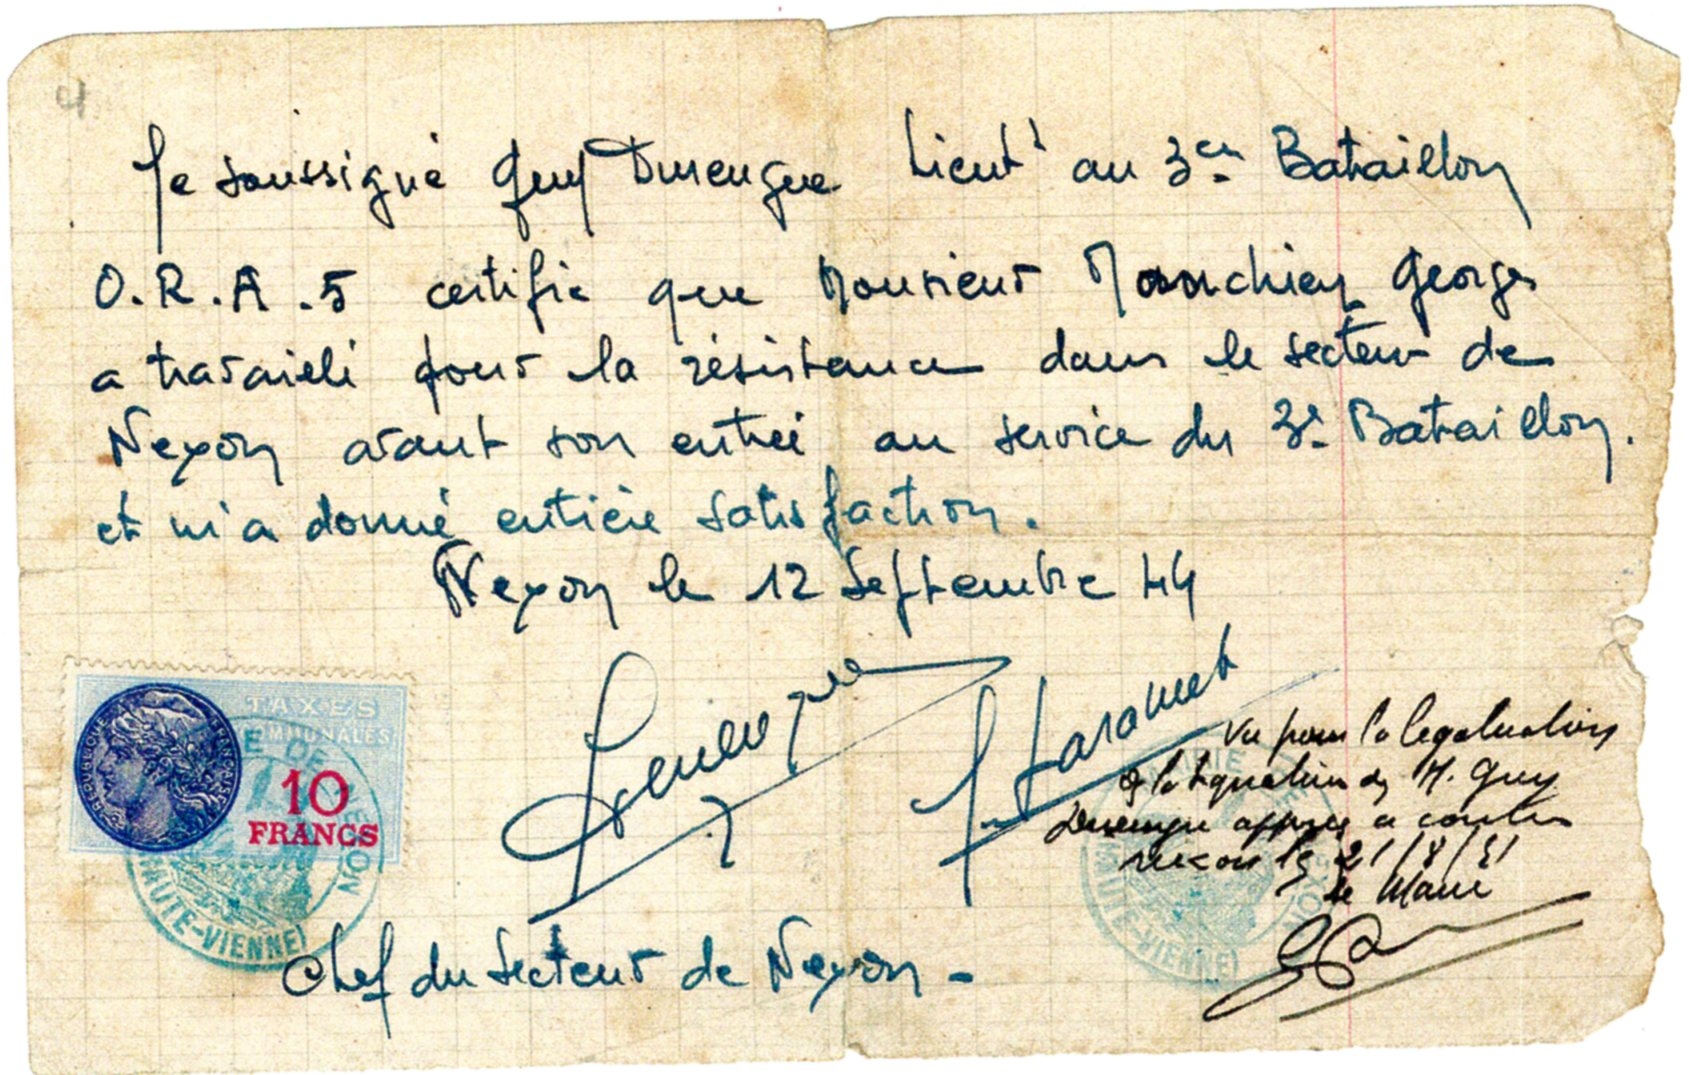 4
Je soussigné Guy Durengue Lieut^t au 3em Bataillon
O.R.A.5 certifie que Monsieur Georges
a travaillé pour la résistance dans le secteur de
Nexon avant son entrée au service du 3e Bataillon.
et m'a donné entière satisfaction.
Nexon le 12 Septembre 44
TAXES
COMMUNALES
REPUBLIQUE FRANÇAISE
10
FRANCS
MAIRIE DE NEXON
(HAUTE-VIENNE)
Durengue
Chef du Secteur de Nexon -
Vu pour la légalisation
de la signature de M. Guy
Durengue apposée ci contre
Nexon le 21/8/51
le Maire
MAIRIE DE NEXON
(HAUTE-VIENNE)